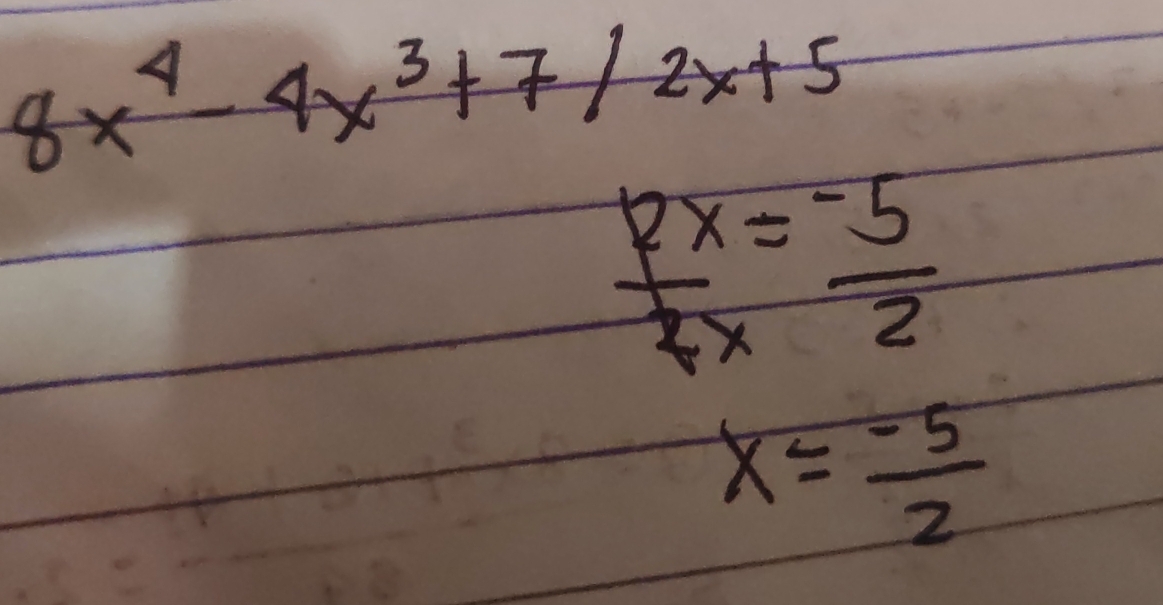 8x⁴ - 4x³ + 7 / 2x + 5
2x = -5
2x 2
x = -5
2